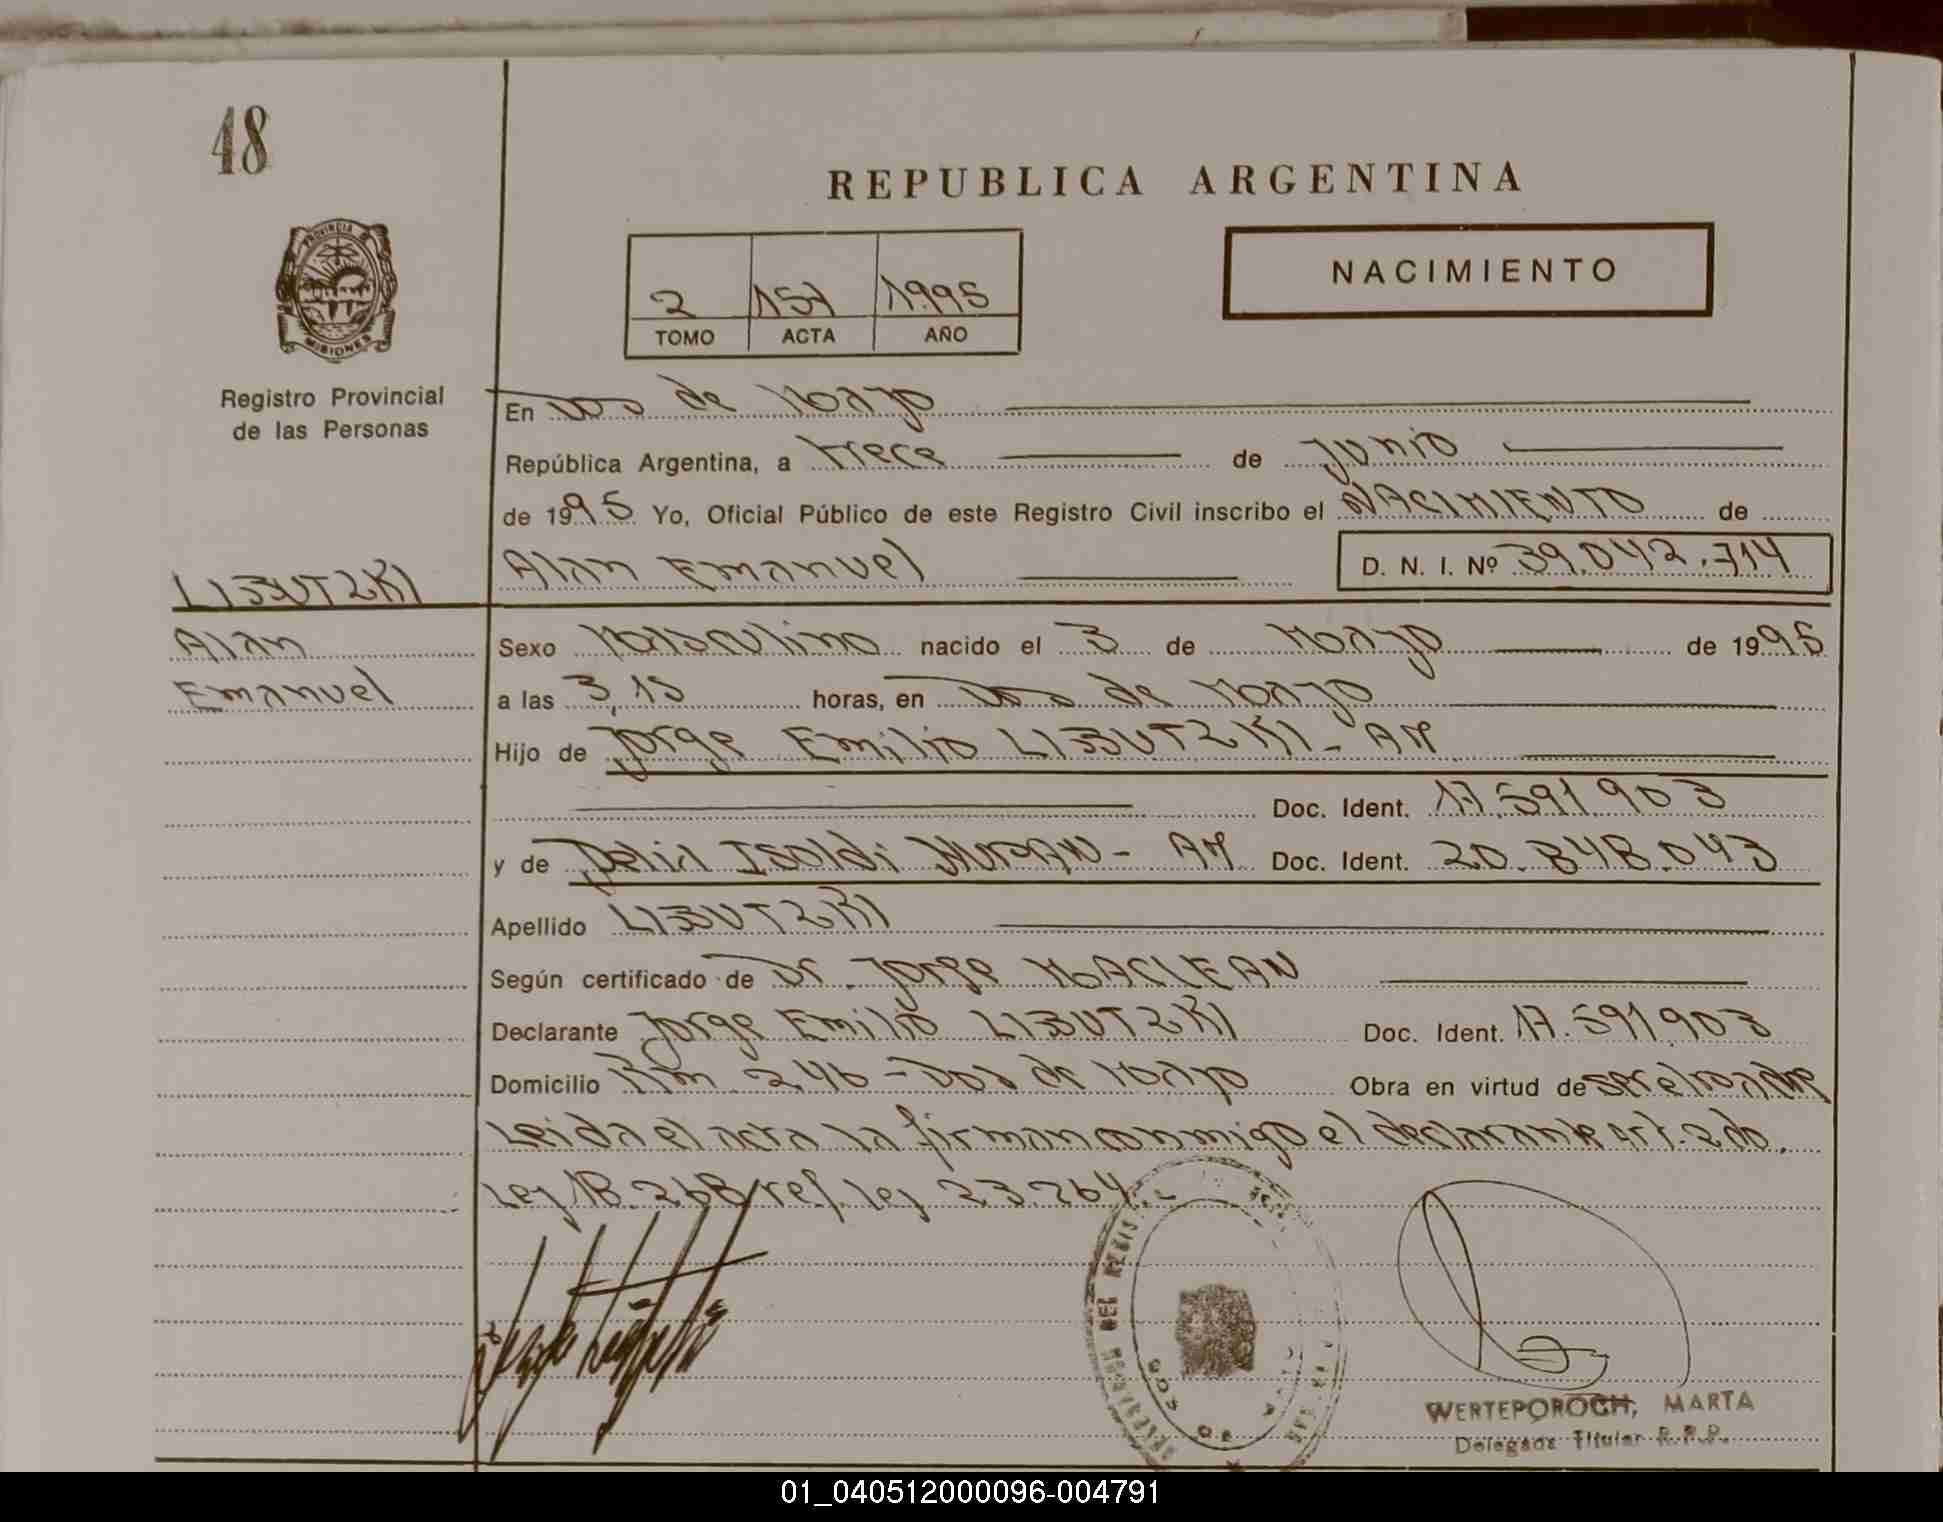 48
REPUBLICA ARGENTINA
PROVINCIA DE
MISIONES
Registro Provincial
de las Personas
2 151 1995
TOMO ACTA AÑO
NACIMIENTO
En Dos de Mayo
República Argentina, a trece de junio
de 1995 Yo, Oficial Público de este Registro Civil inscribo el NACIMIENTO de
Alan Emanuel D. N. I. Nº 39.042.714
LISSUTZKI
Alan
Emanuel
Sexo Masculino nacido el 3 de Mayo de 1995
a las 3,15 horas, en Dos de Mayo
Hijo de Jorge Emilio LISSUTZKI - AR
Doc. Ident. 17.591.903
y de Delia Isoldi - AR Doc. Ident. 20.848.043
Apellido LISSUTZKI
Según certificado de Dr. Jorge MACLEAN
Declarante Jorge Emilio LISSUTZKI Doc. Ident. 17.591903
Domicilio Km 246 - Dos de Mayo Obra en virtud de ser el padre
Leida el acta la firman conmigo el declarante Art. 2do.
Ley 18.248 ref. Ley 23.264
WERTEPOROCH, MARTA
Delegada Titular R.P.P.
01_040512000096-004791